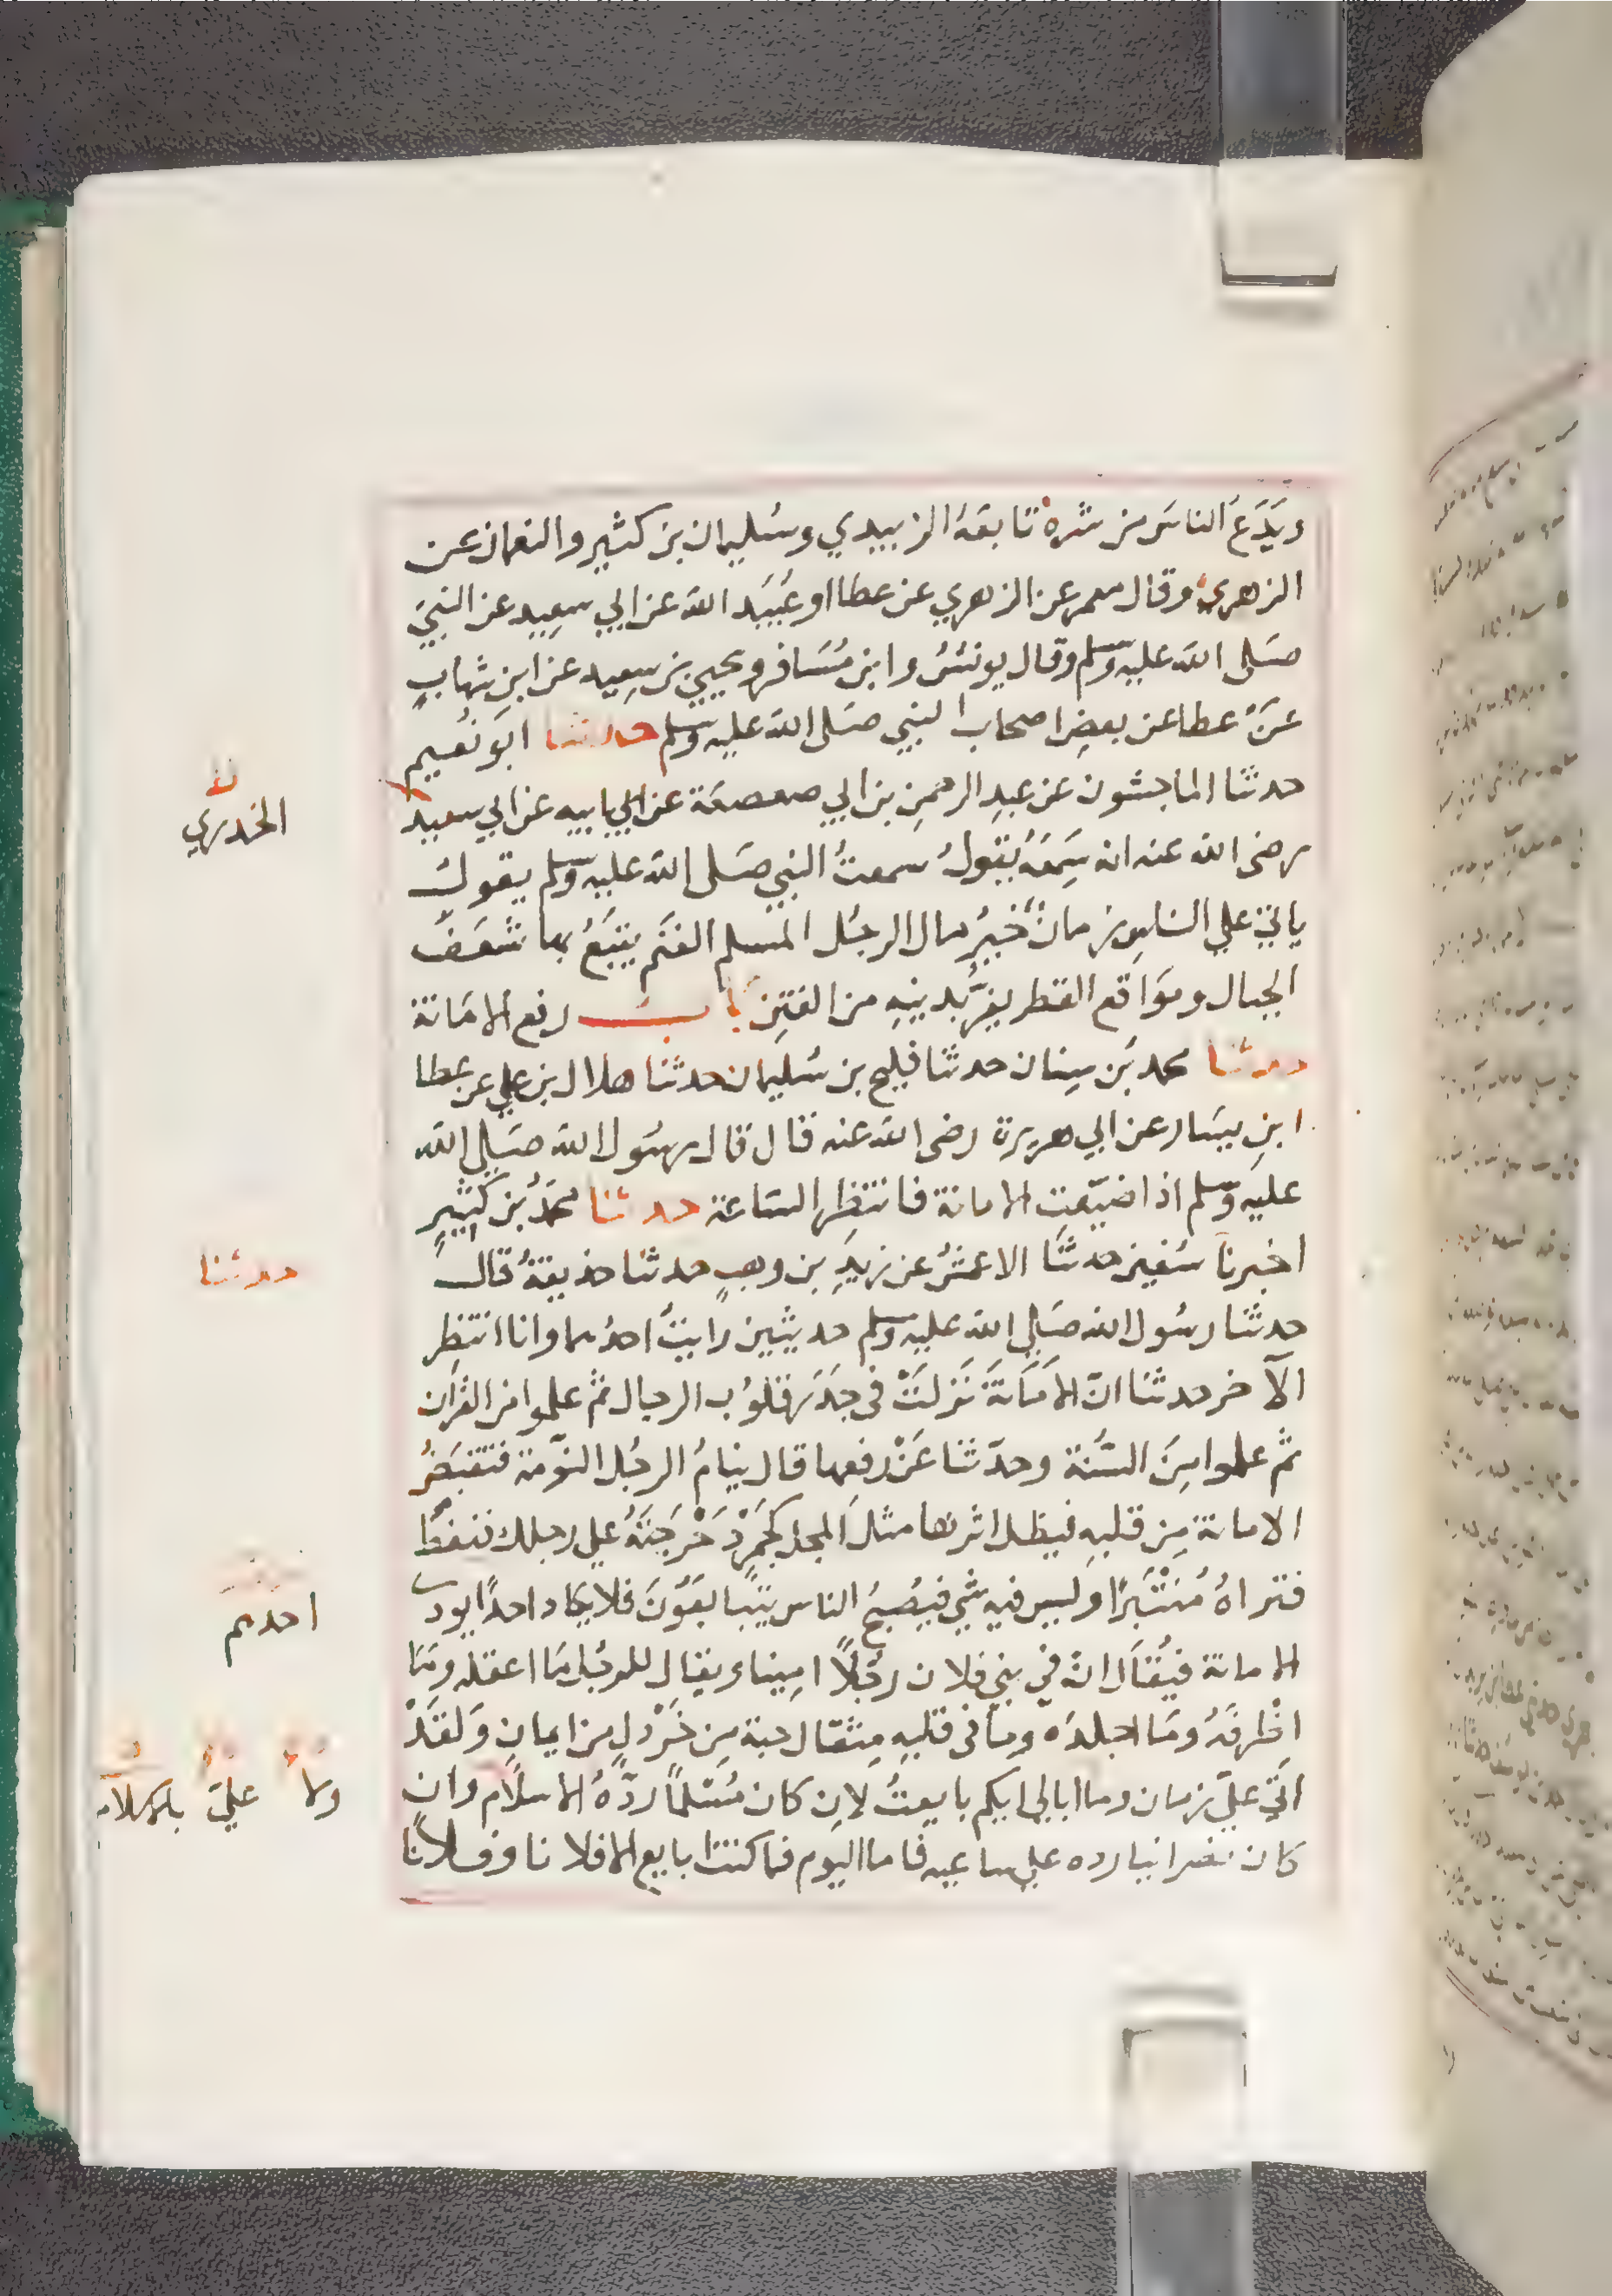 ويَدَعُ الناسَ من شره تابعهُ الزبيدي وسُليمان بن كثير والنعمان عن
الزهري وقال معمر عن الزهري عن عطا او عُبَيد الله عن ابي سعِيد عن النبي
صَلى الله عليه وسلم وقال يونسُ وابن مُسَافر ويحيي بن سعِيد عن ابنِ شهابٍ
عَنْ عطا عن بعضِ اصحاب النبي صَلى الله عليه وسلم حدثنا ابو نُعيم
حدثنا الماجشون عن عبدِ الرحمنِ بن ابي صعصعَة عن ابي ابيه عن ابي سعيد
الخدري
رضى الله عنه انه سَمِعَهُ يقولُ سمعتُ النبي صَلى الله عليه وسلم يقول
ياتي علي الناسِ زمانٌ خيرُ مال الرجُل المسلم الغنَم يتبَعُ بها شعَفَ
الجبال ومَوَاقع القطر يفرُّ بدينِهِ من الفتِن باب رفع الامَانة
حدثنا محمد بن سِنان حدثنا فليح بن سُليمان حدثنا هلال بن علي عن عطا
ابنِ يسَار عن ابي هريرة رضى الله عنه قال قال رسُول الله صَلي الله
عليه وسلم اذا ضيّعتِ الامانة فانتظِر السَاعة حدثنا محمدُ بن كثيرٍ
حدثنا
اخبرنا سُفين حدثنَا الاعمشُ عن زيدِ بن وهبٍ حدثنا حذيفةُ قال
حدثنا رسُول الله صَلي الله عليه وسلم حديثين رايتُ احدُهما وانا انتظِر
الآخر حدثنا انّ الامَانَةَ نَزلَتْ فى جَذرِ قلوُب الرجال ثمّ علموا من القرآن
ثمّ علموا مِنَ السُّنة وحدَّثنا عَنْ رفعِها قال ينامُ الرجُل النَّومة فتقبَضُ
الامانة مِن قلبِهِ فيظل اثرها مثلَ المجل كجَمرٍ دَحْرَجَتَهُ علي رجلك فنفطَ
فتراهُ مُنتَبرًا وليس فيه شي فيُصبحُ الناس يتبايعَوُنَ فلا يكاد احدًا يودي
احدهم
الامانة فيُقَال انّ في بني فلان رجُلاً امينا ويقال للرجُل مَا اعقله ومَا
اظرفَهُ ومَا اجلدَه ومَا فى قلبِهِ مِثقال حبة مِن خَرْدلٍ من ايمانٍ وَلقَدْ
اتي عليّ زمان وما ابالي ايكم بايعتُ لانِ كان مُسْلماً ردّهُ الاسلام وان
ولا علَيّ بالاسلام
كان نصرانيا رده علي ساعيه فاما اليوم فما كنت ابايع الا فلانا وفلانًا